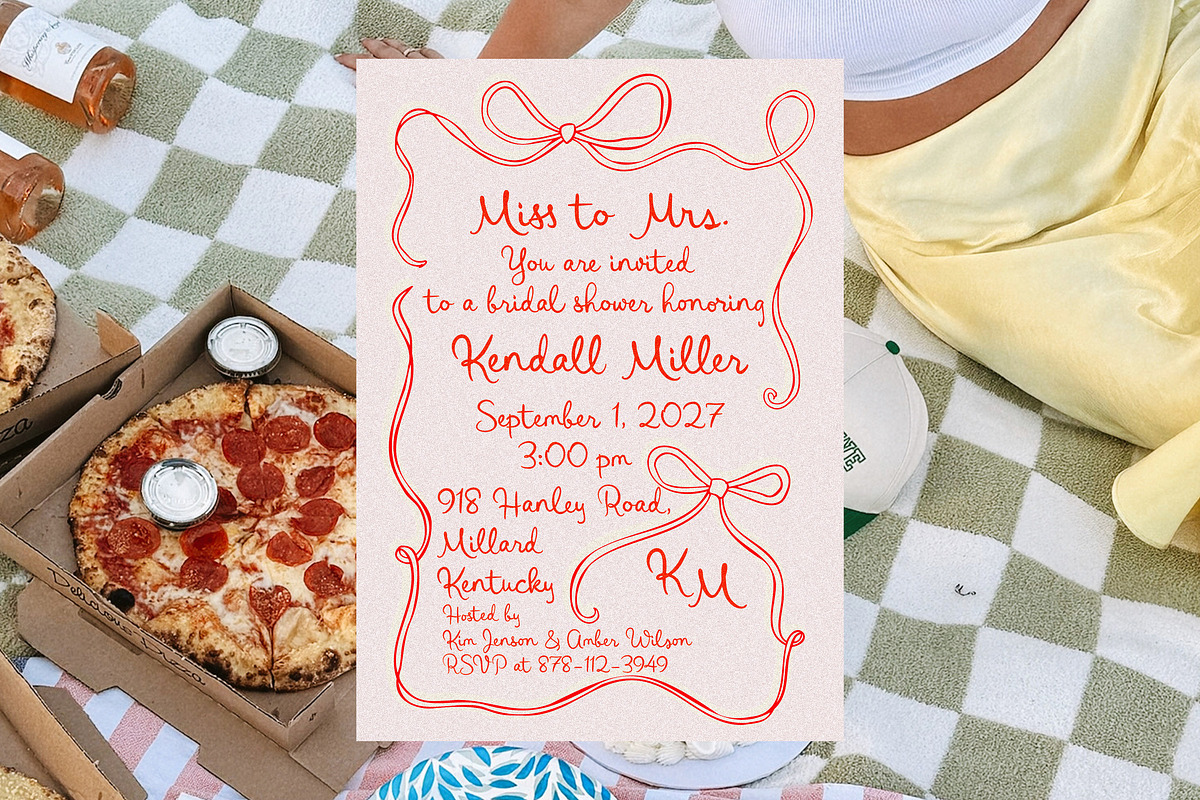 Miss to Mrs.
You are invited
to a bridal shower honoring
Kendall Miller
September 1, 2027
3:00 pm
918 Hanley Road,
Millard
Kentucky
KM
Hosted by
Kim Jenson & Amber Wilson
RSVP at 878-112-3949
Delicious Pizza